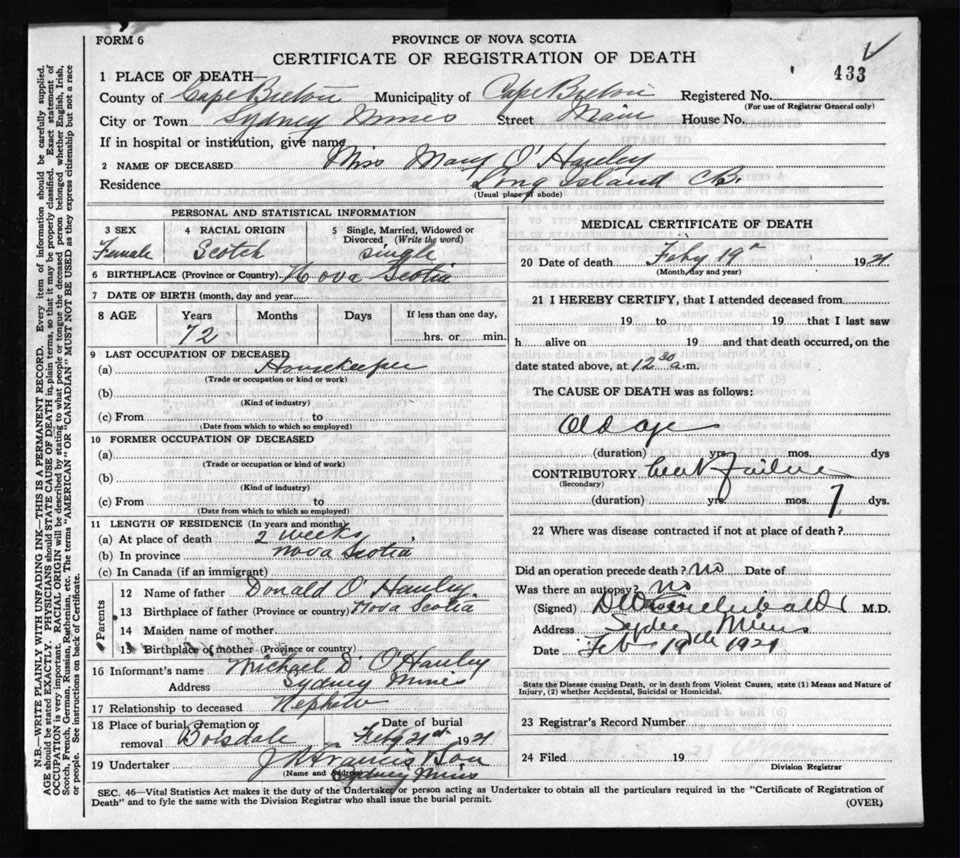 FORM 6
PROVINCE OF NOVA SCOTIA
CERTIFICATE OF REGISTRATION OF DEATH
433
1 PLACE OF DEATH—
County of Cape Breton Municipality of Cape Breton Registered No.
(For use of Registrar General only)
City or Town Sydney Mines Street Main House No.
If in hospital or institution, give name
2 NAME OF DECEASED Miss Mary O'Hanley
Residence Long Island C.B.
(Usual place of abode)
PERSONAL AND STATISTICAL INFORMATION
3 SEX
Female
4 RACIAL ORIGIN
Scotch
5 Single, Married, Widowed or
Divorced (Write the word)
single
6 BIRTHPLACE (Province or Country) Nova Scotia
7 DATE OF BIRTH (month, day and year)
8 AGE Years Months Days If less than one day,
72 hrs. or min.
9 LAST OCCUPATION OF DECEASED
(a) Housekeeper
(Trade or occupation or kind or work)
(b)
(Kind of industry)
(c) From to
(Date from which to which so employed)
10 FORMER OCCUPATION OF DECEASED
(a)
(Trade or occupation or kind of work)
(b)
(Kind of industry)
(c) From to
(Date from which to which so employed)
11 LENGTH OF RESIDENCE (In years and months)
(a) At place of death 2 weeks
(b) In province Nova Scotia
(c) In Canada (if an immigrant)
Parents
12 Name of father Donald O'Hanley
13 Birthplace of father (Province or country) Nova Scotia
14 Maiden name of mother
15 Birthplace of mother (Province or country)
16 Informant's name Michael D O'Hanley
Address Sydney Mines
17 Relationship to deceased Nephew
18 Place of burial, cremation or Date of burial
removal Boisdale Feby 21st 1921
19 Undertaker J R Francis & Son
(Name and Address) Sydney Mines
MEDICAL CERTIFICATE OF DEATH
20 Date of death Feby 19th 1921
(Month, day and year)
21 I HEREBY CERTIFY, that I attended deceased from
19 to 19 that I last saw
h alive on 19 and that death occurred, on the
date stated above, at 12 30 a.m.
The CAUSE OF DEATH was as follows:
Old age
(duration) yrs. mos. dys
CONTRIBUTORY heart failure
(Secondary)
(duration) yrs. mos. 7 dys.
22 Where was disease contracted if not at place of death?
Did an operation precede death? no Date of
Was there an autopsy? no
(Signed) M.D.
Address Sydney Mines
Date Feb 19th 1921
State the Disease causing Death, or in death from Violent Causes, state (1) Means and Nature of
Injury, (2) whether Accidental, Suicidal or Homicidal.
23 Registrar's Record Number
24 Filed 19
Division Registrar
SEC. 46—Vital Statistics Act makes it the duty of the Undertaker or person acting as Undertaker to obtain all the particulars required in the "Certificate of Registration of
Death" and to fyle the same with the Division Registrar who shall issue the burial permit.
(OVER)
N.B.—WRITE PLAINLY WITH UNFADING INK—THIS IS A PERMANENT RECORD. Every item of information should be carefully supplied.
AGE should be stated EXACTLY. PHYSICIANS should STATE CAUSE OF DEATH in plain terms, so that it may be properly classified. Exact statement of
OCCUPATION is very important. RACIAL ORIGIN will be described by stating to what people or tongue the deceased person belonged, whether English, Irish,
Scotch, French, German, Russian, Ruthenian, etc. The terms "AMERICAN" OR "CANADIAN" MUST NOT BE USED as they express citizenship but not a race
or people. See instructions on back of Certificate.